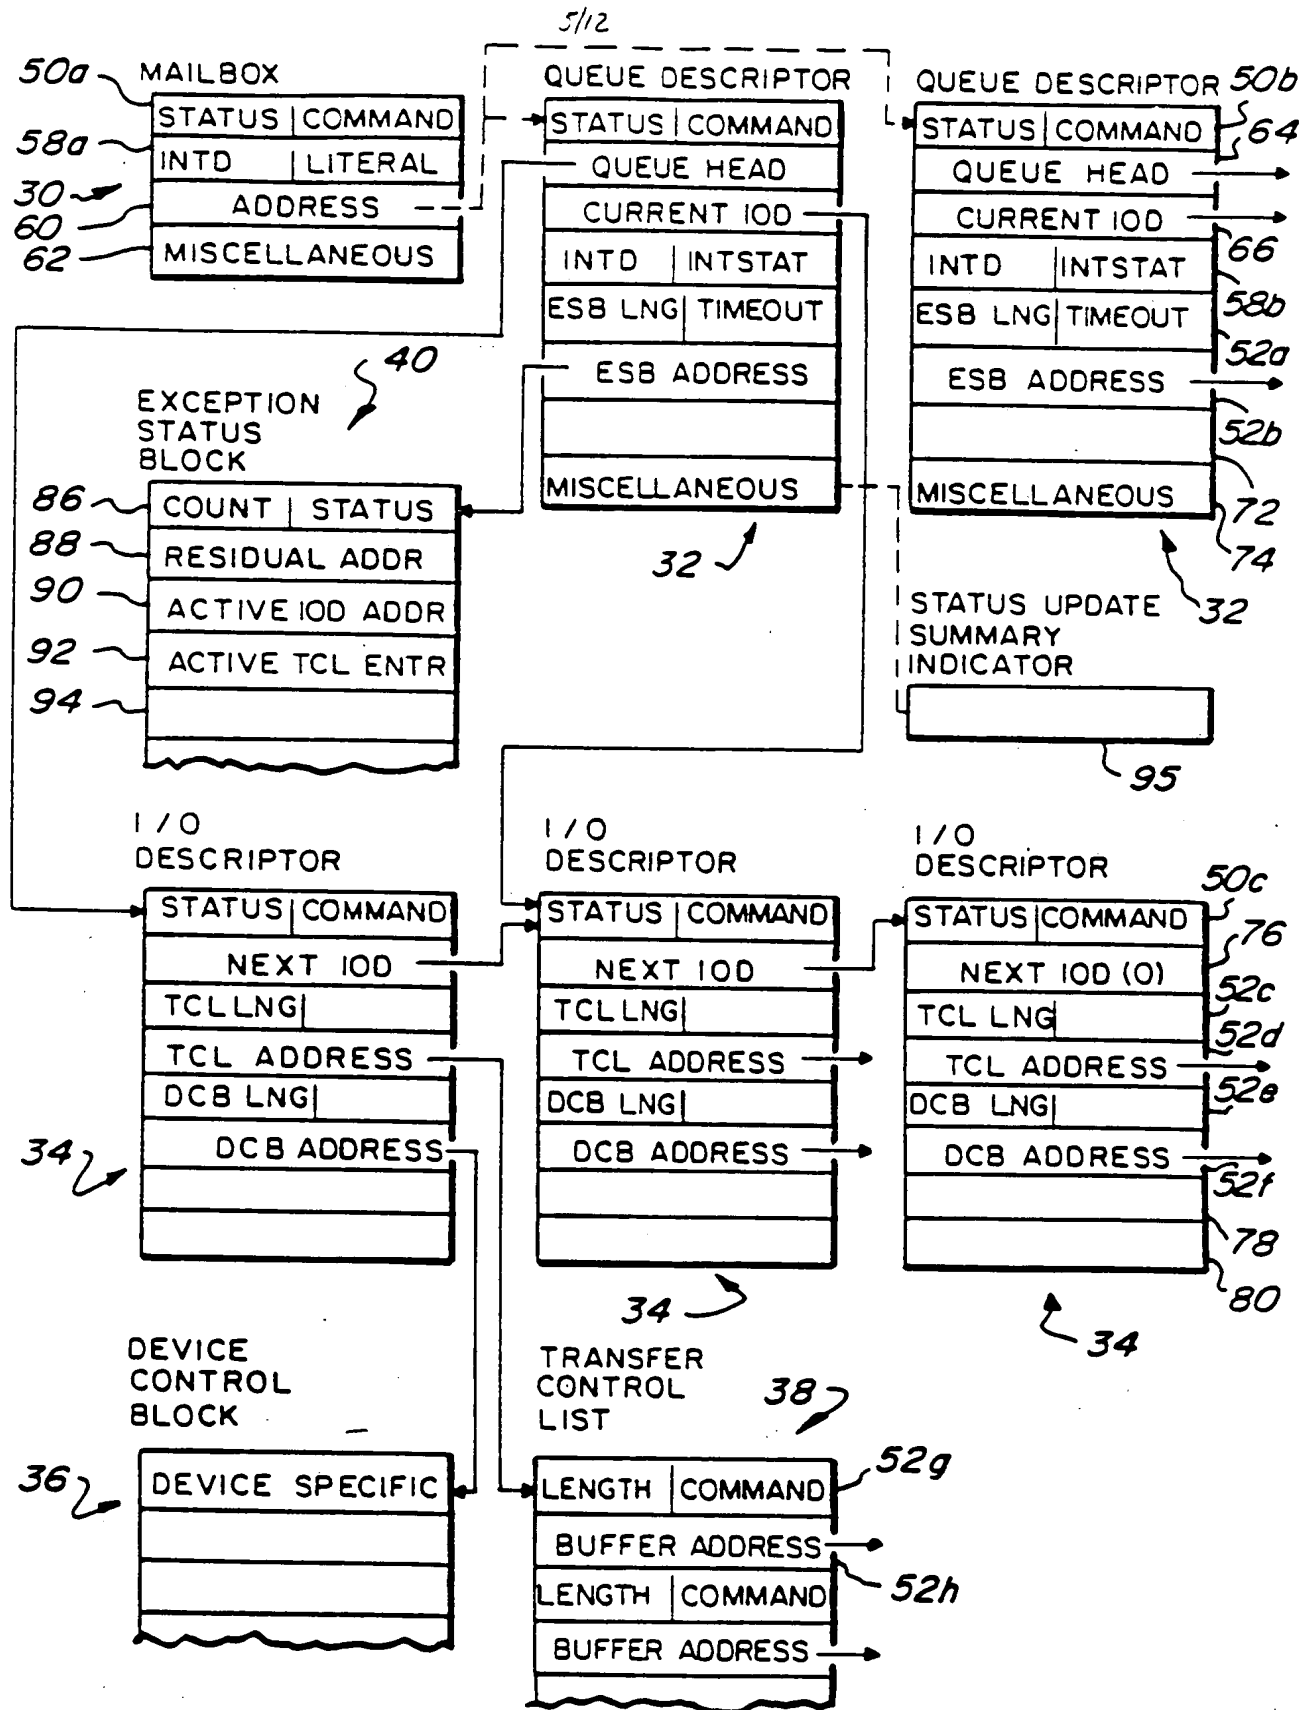 5/12
MAILBOX
50a
STATUS COMMAND
58a
INTD LITERAL
30
ADDRESS
60
MISCELLANEOUS
62
QUEUE DESCRIPTOR
STATUS COMMAND
QUEUE HEAD
CURRENT IOD
INTD INTSTAT
ESB LNG TIMEOUT
ESB ADDRESS
MISCELLANEOUS
32
QUEUE DESCRIPTOR
50b
STATUS COMMAND
64
QUEUE HEAD
CURRENT IOD
66
INTD INTSTAT
58b
ESB LNG TIMEOUT
52a
ESB ADDRESS
52b
72
MISCELLANEOUS
74
32
40
EXCEPTION
STATUS
BLOCK
86
COUNT STATUS
88
RESIDUAL ADDR
90
ACTIVE IOD ADDR
92
ACTIVE TCL ENTR
94
STATUS UPDATE
SUMMARY
INDICATOR
95
I/O
DESCRIPTOR
STATUS COMMAND
NEXT IOD
TCL LNG
TCL ADDRESS
DCB LNG
DCB ADDRESS
34
I/O
DESCRIPTOR
STATUS COMMAND
NEXT IOD
TCL LNG
TCL ADDRESS
DCB LNG
DCB ADDRESS
34
I/O
DESCRIPTOR
50c
STATUS COMMAND
76
NEXT IOD (0)
52c
TCL LNG
52d
TCL ADDRESS
52e
DCB LNG
DCB ADDRESS
52f
78
80
34
DEVICE
CONTROL
BLOCK
36
DEVICE SPECIFIC
TRANSFER
CONTROL
LIST
38
52g
LENGTH COMMAND
BUFFER ADDRESS
52h
LENGTH COMMAND
BUFFER ADDRESS